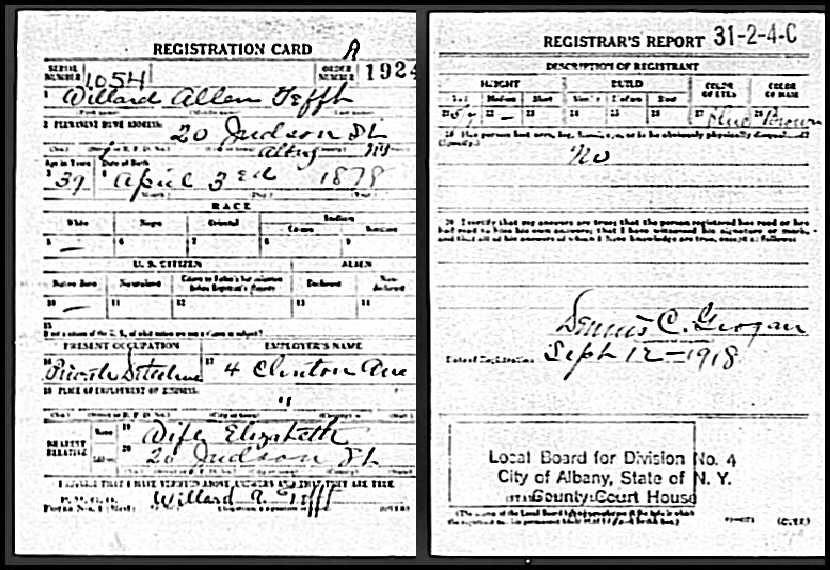 REGISTRATION CARD A
SERIAL NUMBER 1054 ORDER NUMBER 1924
1 Willard Allen Tefft
2 PERMANENT HOME ADDRESS: 20 Judson St
Albany NY
Age in Years Date of Birth
3 39 4 April 3rd 1879
RACE
White Negro Oriental Indian
Citizen
5 — 6 7 8 9
U. S. CITIZEN ALIEN
Native Born Naturalized Declarant
10 — 11 12 13 14
15
If not a citizen of the U. S., of what nation are you a citizen or subject?
PRESENT OCCUPATION EMPLOYER'S NAME
16 Private Detective 17 4 Clinton Ave
18 PLACE OF EMPLOYMENT OR BUSINESS:
"
NEAREST RELATIVE Name 19 Wife Elizabeth
Address 20 20 Judson St
I AFFIRM THAT I HAVE VERIFIED ABOVE ANSWERS AND THAT THEY ARE TRUE
P. M. G. O.
Form No. 1 (Red) Willard A. Tefft (OVER)
REGISTRAR'S REPORT 31-2-4-C
DESCRIPTION OF REGISTRANT
HEIGHT BUILD COLOR OF EYES COLOR OF HAIR
Tall Medium Short Slender Medium Stout
21 22 — 23 24 25 26 27 Blue 28 Brown
29 Has person lost arm, leg, hand, eye, or is he obviously physically disqualified? (Specify.)
No
30 I certify that my answers are true; that the person registered has read or has
had read to him his own answers; that I have witnessed his signature or mark,
and that all of his answers of which I have knowledge are true, except as follows:
Dennis C. Grogan
Date of Registration Sept 12-1918
Local Board for Division No. 4
City of Albany, State of N. Y.
County Court House
(The stamp of the Local Board having jurisdiction of the area in which
the registrant has his permanent home shall be placed in this box.)
(OVER)